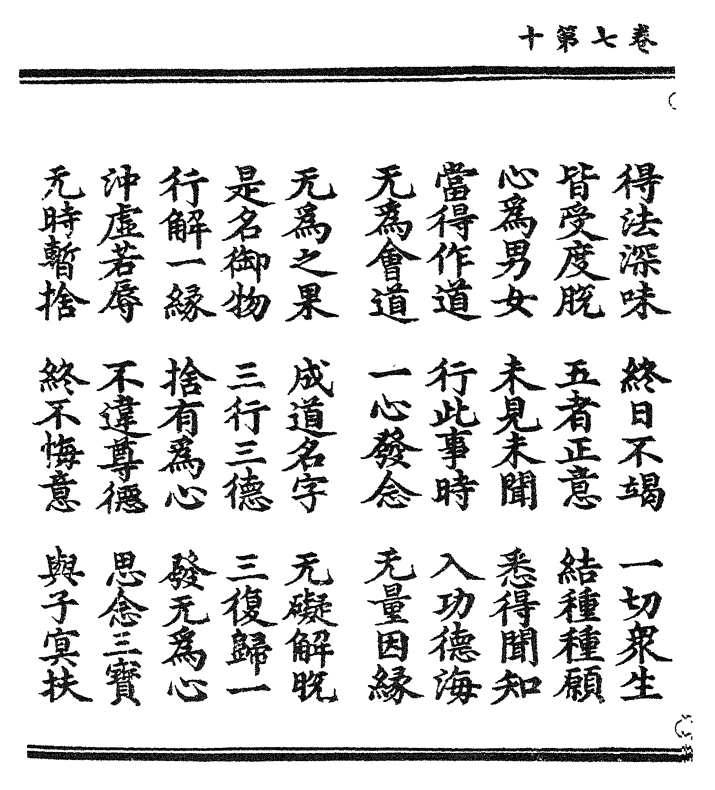 卷七第十
得法深味 終日不竭 一切衆生
皆受度脫 五者正意 結種種願
心爲男女 未見未聞 悉得聞知
當得作道 行此事時 入功德海
无爲會道 一心發念 无量因緣
无爲之果 成道名字 无礙解脫
是名御物 三行三德 三復歸一
行解一緣 捨有爲心 發无爲心
沖虛若辱 不違尊德 思念三寶
无時暫捨 終不悔意 與子冥扶